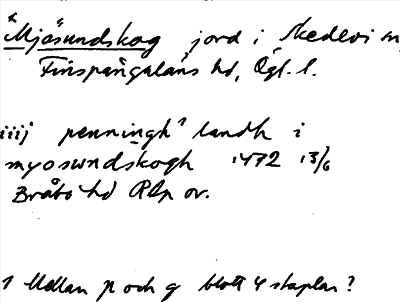 * Mjösundskog jord i Skedevi sn,
Finspångaläns hd, Ögl. l.
iiij penningh¹ landh i
myoswndskogh 1472 13/6
Bråbo hd RAp or.
1 Mellan n och g blott 4 staplar?